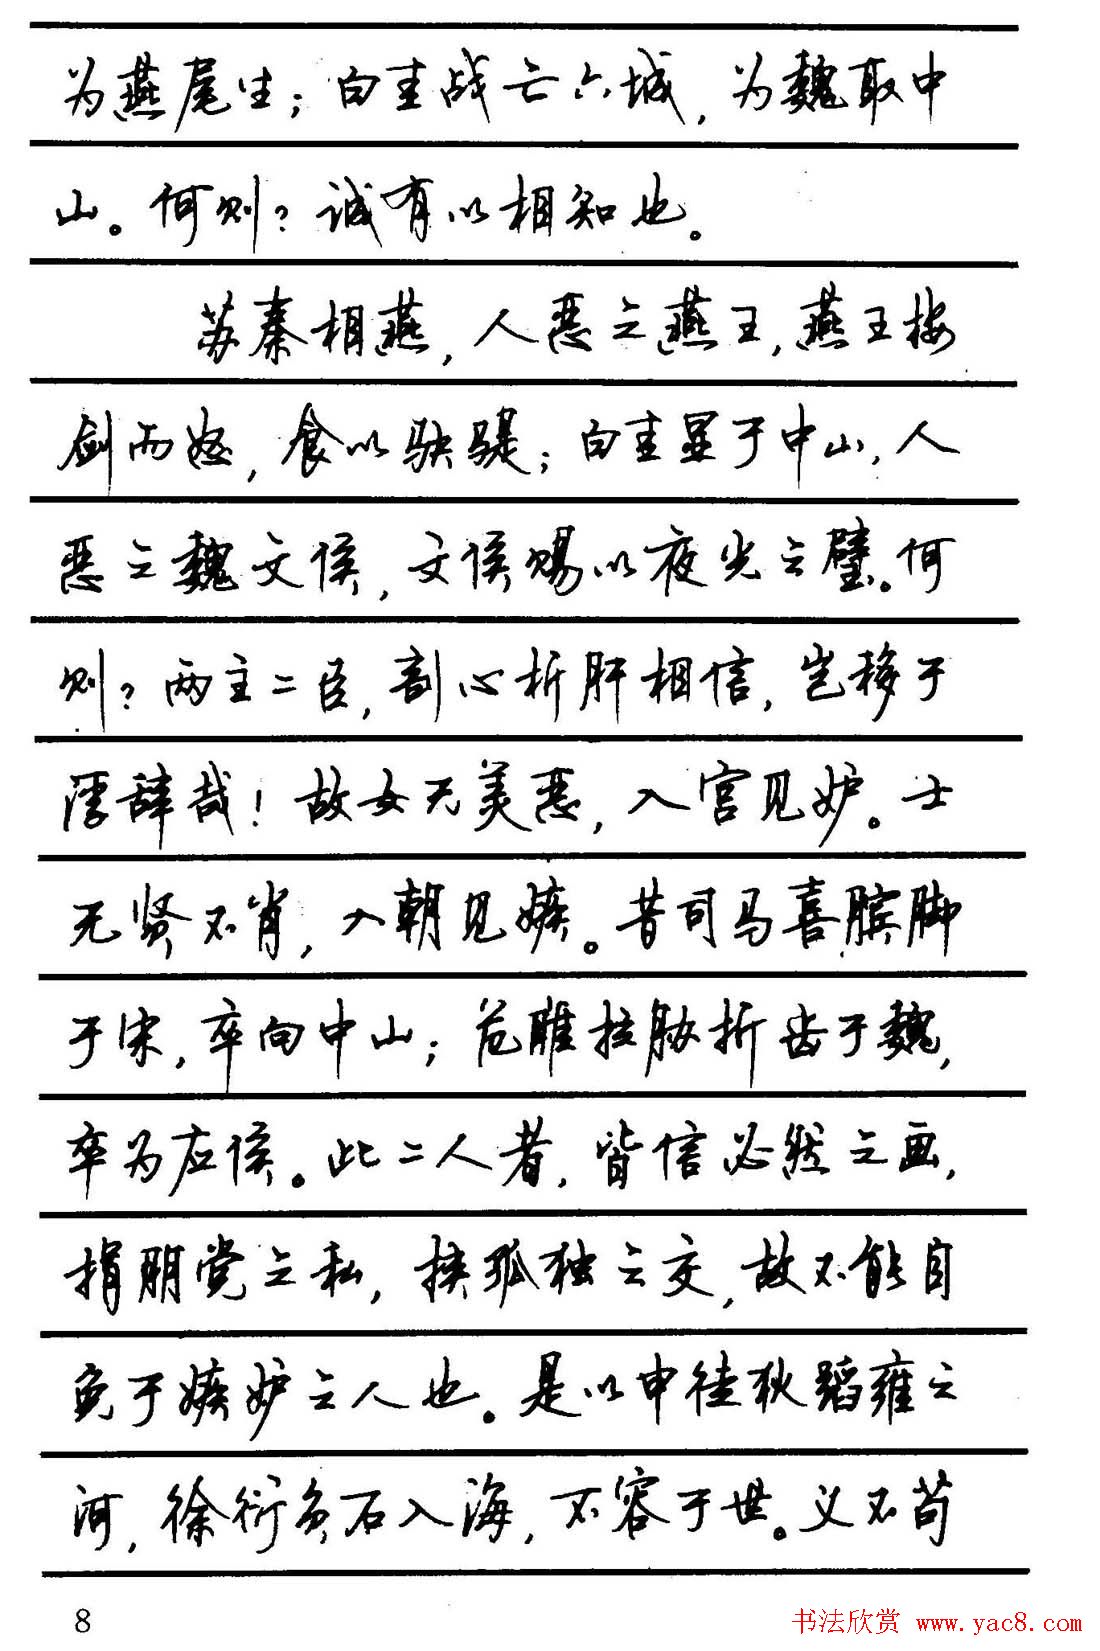 为燕尾生；白圭战亡六城，为魏取中
山。何则？诚有以相知也。
苏秦相燕，人恶之燕王，燕王按
剑而怒，食以駃騠；白圭显于中山，人
恶之魏文侯，文侯赐以夜光之璧。何
则？两主二臣，剖心析肝相信，岂移于
浮辞哉！故女无美恶，入宫见妒。士
无贤不肖，入朝见嫉。昔司马喜膑脚
于宋，卒向中山；范雎拉胁折齿于魏，
卒为应侯。此二人者，皆信必然之画，
捐朋党之私，挟孤独之交，故不能自
免于嫉妒之人也。是以申徒狄蹈雍之
河，徐衍负石入海，不容于世。义不苟
8
书法欣赏 www.yac8.com